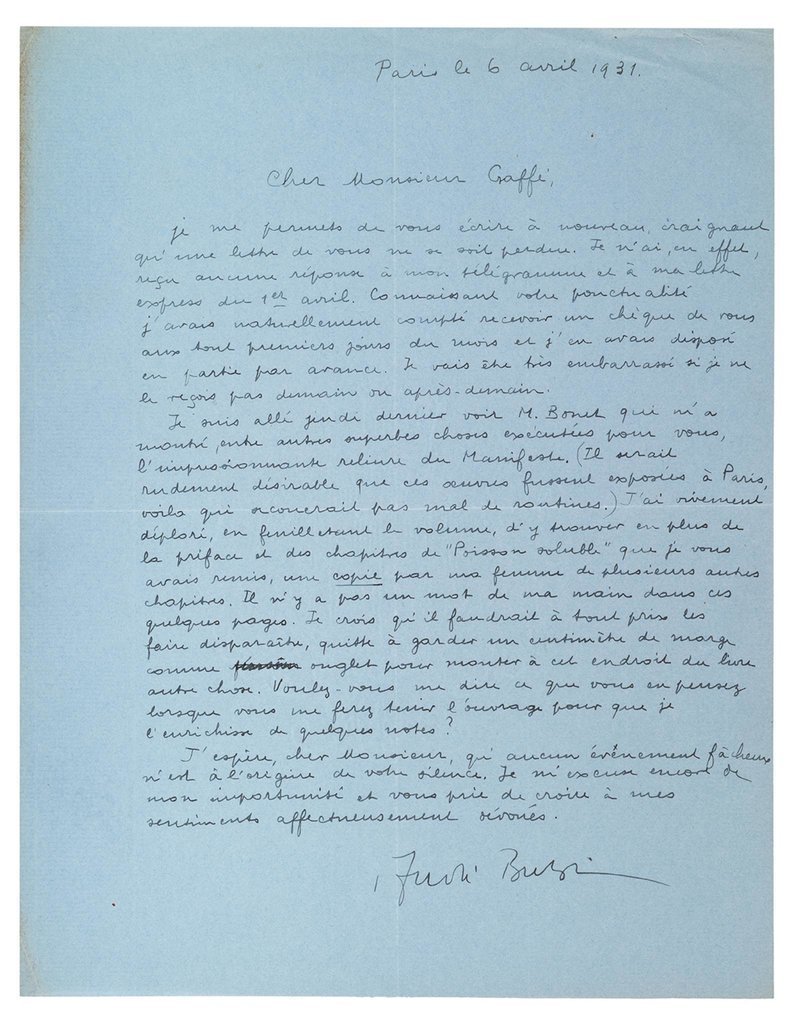 Paris le 6 avril 1931.
Cher Monsieur Gaffé,
je me permets de vous écrire à nouveau, craignant
qu'une lettre de vous ne se soit perdue. Je n'ai, en effet,
reçu aucune réponse à mon télégramme et à ma lettre
express du 1er avril. Connaissant votre ponctualité
j'avais naturellement compté recevoir un chèque de vous
aux tout premiers jours du mois et j'en avais disposé
en partie par avance. Je vais être très embarrassé si je ne
le reçois pas demain ou après-demain.
Je suis allé jeudi dernier voir M. Bonet qui m'a
montré, entre autres superbes choses exécutées pour vous,
l'impressionnante reliure du Manifeste. (Il serait
rudement désirable que ces œuvres fussent exposées à Paris,
voila qui secouerait pas mal de routines.) J'ai vivement
déploré, en feuilletant le volume, d'y trouver en plus de
la préface et des chapitres de "Poisson soluble" que je vous
avais remis, une copie par ma femme de plusieurs autres
chapitres. Il n'y a pas un mot de ma main dans ces
quelques pages. Je crois qu'il faudrait à tout prix les
faire disparaître, quitte à garder un centimètre de marge
comme onglet pour monter à cet endroit du livre
autre chose. Voulez-vous me dire ce que vous en pensez
lorsque vous me ferez tenir l'ouvrage pour que je
l'enrichisse de quelques notes?
J'espère, cher Monsieur, qu'aucun événement fâcheux
n'est à l'origine de votre silence. Je m'excuse encore de
mon importunité et vous prie de croire à mes
sentiments affectueusement dévoués.
André Breton